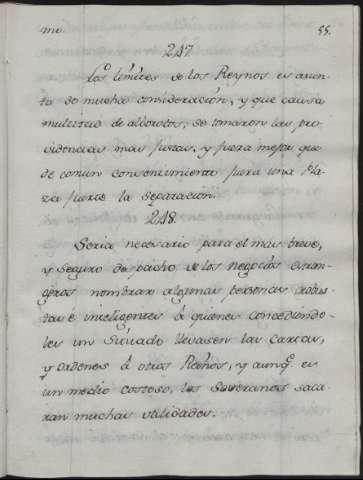 mo.
55.
247.
Los límites de los Reynos es asun-
to de mucha consideración, y que causa
multitud de alborotos; se tomaron las pro-
videncias mas justas, y fuera mejor que
de comun consentimiento fuera una Pla-
za fuerte la Separacion.
248.
Seria necesario para el mas breve,
y seguro despacho de los negocios estran-
geros nombrar algunas personas
é inteligentes á quienes concediendo-
les un Sueldo llevasen las Cartas,
y Ordenes á otros Reynos, y aunq.e es
un medio costoso, los Soveranos saca-
ran muchas utilidades.